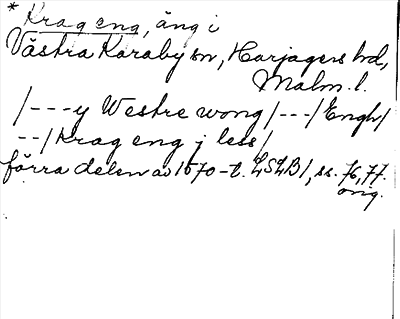 * Krag eng, äng i
Västra Karaby sn, Harjagers hd,
Malm. l.
/---y Westre wong/---/Engh/
--/Krag eng j less/
förra delen av 1670-t. LSLB1, ss. 76, 77.
orig.